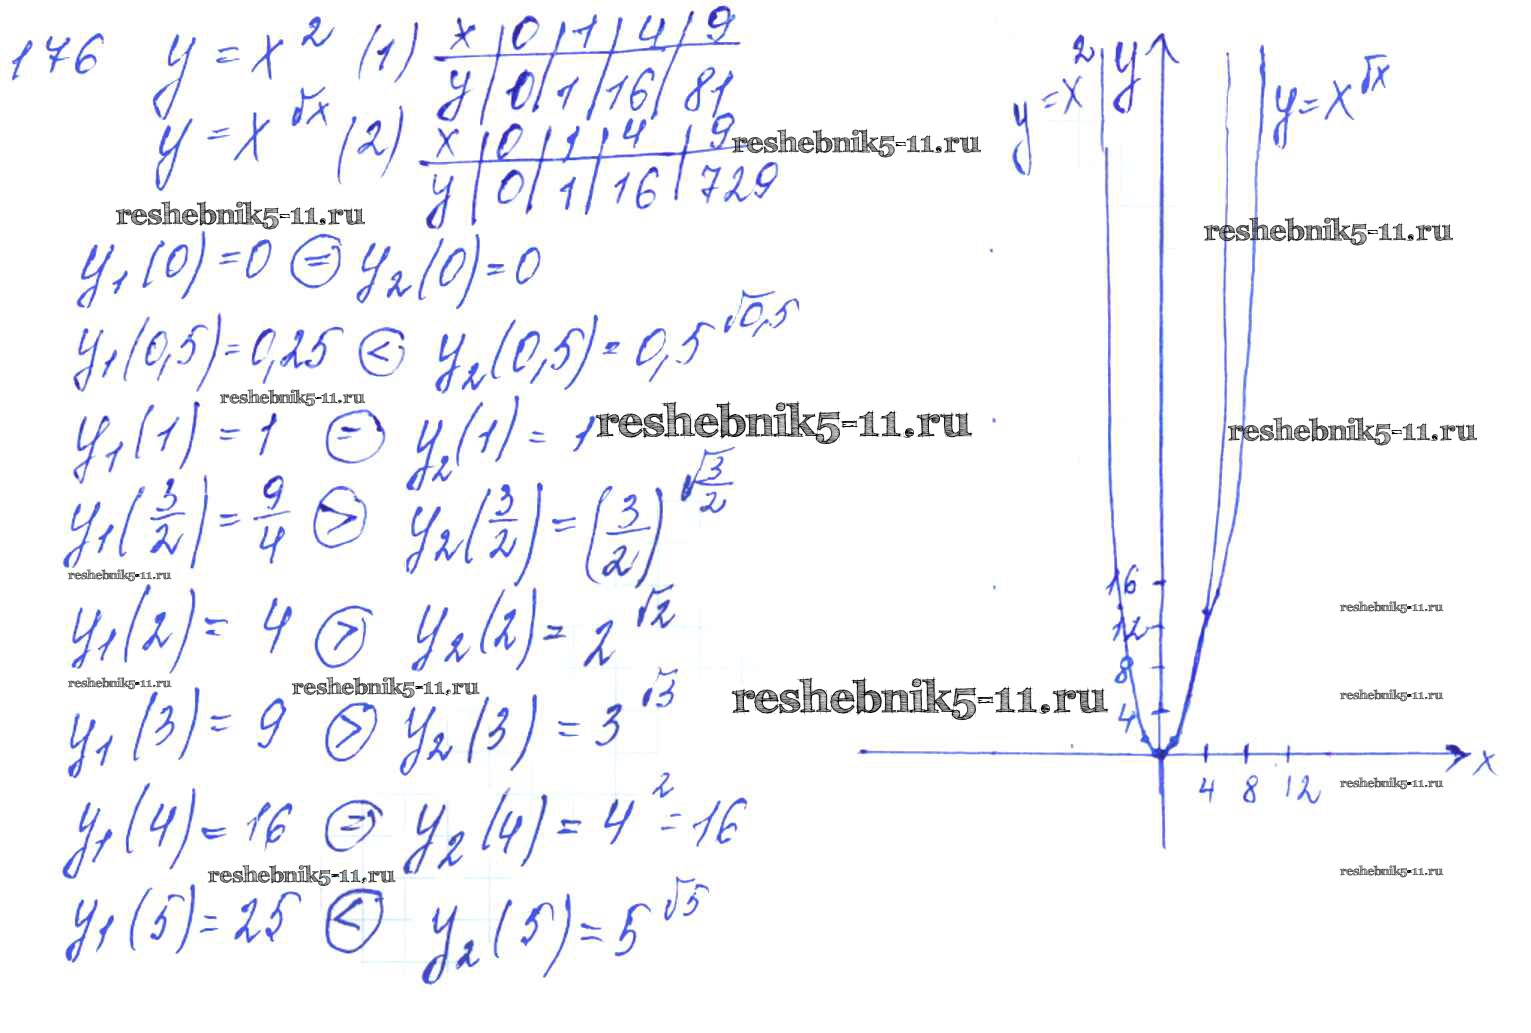 176 y = x² (1) x | 0 | 1 | 4 | 9
y | 0 | 1 | 16 | 81
y = x^√x (2) x | 0 | 1 | 4 | 9
y | 0 | 1 | 16 | 729
reshebnik5-11.ru
reshebnik5-11.ru
y₁(0) = 0 (=) y₂(0) = 0
y₁(0,5) = 0,25 (<) y₂(0,5) = 0,5^√0,5
reshebnik5-11.ru
y₁(1) = 1 (=) y₂(1) = 1
reshebnik5-11.ru
y₁(3/2) = 9/4 (>) y₂(3/2) = (3/2)^√(3/2)
reshebnik5-11.ru
y₁(2) = 4 (>) y₂(2) = 2^√2
reshebnik5-11.ru
reshebnik5-11.ru
reshebnik5-11.ru
y₁(3) = 9 (>) y₂(3) = 3^√3
y₁(4) = 16 (=) y₂(4) = 4² = 16
reshebnik5-11.ru
y₁(5) = 25 (<) y₂(5) = 5^√5
y = x²
y
y = x^√x
reshebnik5-11.ru
reshebnik5-11.ru
16
12
8
4
reshebnik5-11.ru
reshebnik5-11.ru
x
4 8 12
reshebnik5-11.ru
reshebnik5-11.ru